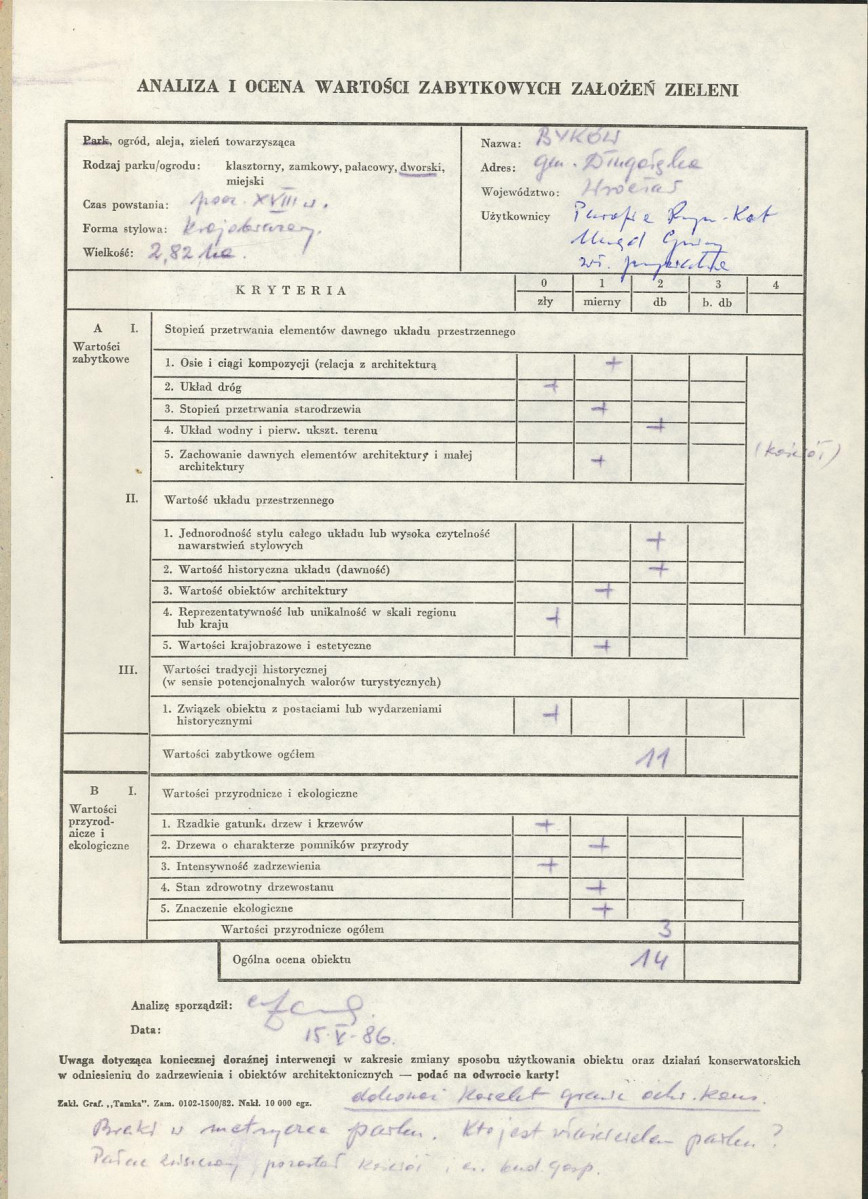 ANALIZA I OCENA WARTOŚCI ZABYTKOWYCH ZAŁOŻEŃ ZIELENI
Park, ogród, aleja, zieleń towarzysząca
Rodzaj parku/ogrodu: klasztorny, zamkowy, pałacowy, dworski,
miejski
Czas powstania: pocz. XVIII w.
Forma stylowa: krajobrazowy.
Wielkość: 2,82 ha.
Nazwa: BYKÓW
Adres: gm. Długołęka
Województwo: Wrocław
Użytkownicy Parafia Rzym-Kat
Urząd Gminy
wł. prywatne
KRYTERIA
0 1 2 3 4
zły mierny db b. db
A I. Stopień przetrwania elementów dawnego układu przestrzennego
Wartości
zabytkowe
1. Osie i ciągi kompozycji (relacja z architekturą +
2. Układ dróg +
3. Stopień przetrwania starodrzewia +
4. Układ wodny i pierw. ukszt. terenu +
5. Zachowanie dawnych elementów architektury i małej + (kościół)
architektury
II. Wartość układu przestrzennego
1. Jednorodność stylu całego układu lub wysoka czytelność +
nawarstwień stylowych
2. Wartość historyczna układu (dawność) +
3. Wartość obiektów architektury +
4. Reprezentatywność lub unikalność w skali regionu +
lub kraju
5. Wartości krajobrazowe i estetyczne +
III. Wartości tradycji historycznej
(w sensie potencjonalnych walorów turystycznych)
1. Związek obiektu z postaciami lub wydarzeniami +
historycznymi
Wartości zabytkowe ogółem 11
B I. Wartości przyrodnicze i ekologiczne
Wartości
przyrod-
nicze i
ekologiczne
1. Rzadkie gatunki drzew i krzewów +
2. Drzewa o charakterze pomników przyrody +
3. Intensywność zadrzewienia +
4. Stan zdrowotny drzewostanu +
5. Znaczenie ekologiczne +
Wartości przyrodnicze ogółem 3
Ogólna ocena obiektu 14
Analizę sporządził:
Data: 15.V.86.
Uwaga dotycząca koniecznej doraźnej interwencji w zakresie zmiany sposobu użytkowania obiektu oraz działań konserwatorskich
w odniesieniu do zadrzewienia i obiektów architektonicznych — podać na odwrocie karty!
Zakł. Graf. „Tamka". Zam. 0102-1500/82. Nakł. 10 000 egz. dokonać korekt granic ochr. kons.
Braki w metryczce parku. Kto jest właścicielem parku?
Pałac zniszczony, pozostał kościół i bud. gosp.